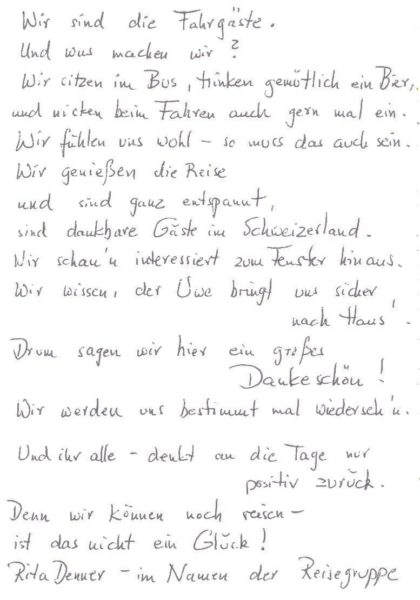 Wir sind die Fahrgäste.
Und was machen wir?
Wir sitzen im Bus, trinken gemütlich ein Bier,
und nicken beim Fahren auch gern mal ein.
Wir fühlen uns wohl – so muss das auch sein.
Wir genießen die Reise
und sind ganz entspannt,
sind dankbare Gäste im Schweizerland.
Wir schau'n interessiert zum Fenster hinaus.
Wir wissen, der Uwe bringt uns sicher
nach Haus'.
Drum sagen wir hier ein großes
Dankeschön!
Wir werden uns bestimmt mal wiederseh'n.
Und ihr alle – denkt an die Tage nur
positiv zurück.
Denn wir können noch reisen –
ist das nicht ein Glück!
Rita Denner – im Namen der Reisegruppe